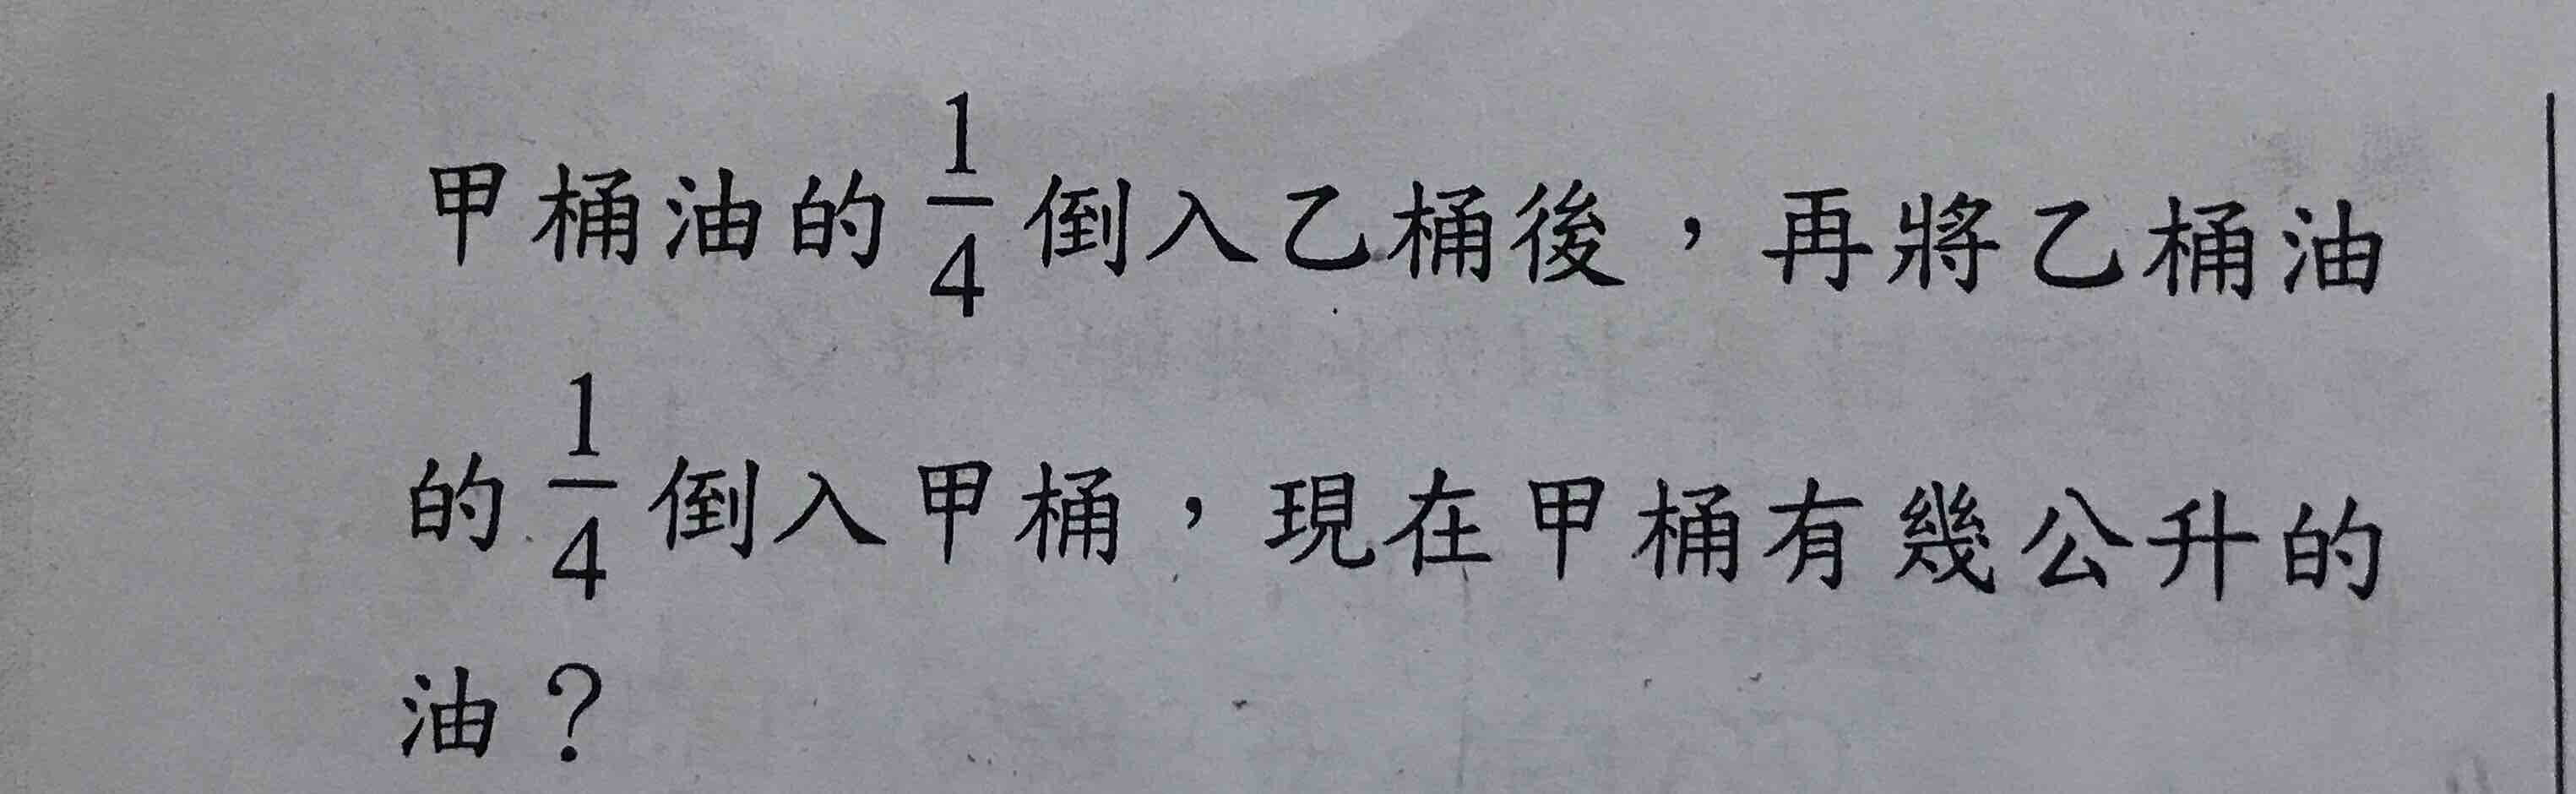 甲桶油的1/4倒入乙桶後，再將乙桶油
的1/4倒入甲桶，現在甲桶有幾公升的
油？